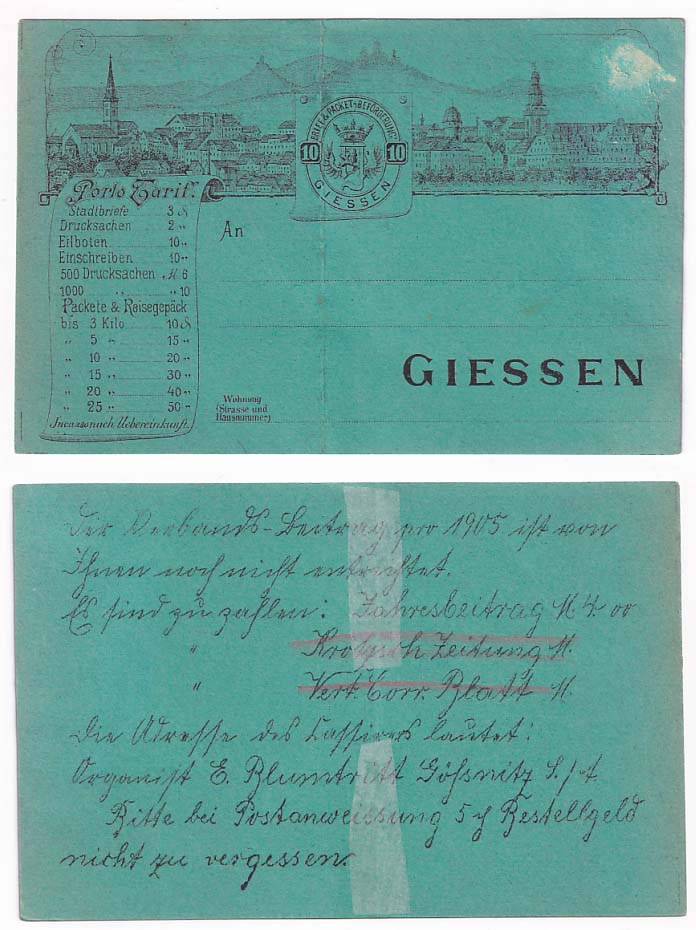 BRIEF & PACKET-BEFÖRDERUNG
10 10
GIESSEN
Porto Tarif.
Stadtbriefe 3 ₰
Drucksachen 2 "
Eilboten 10 "
Einschreiben 10 "
500 Drucksachen M 6
1000 " " 10
Packete & Reisegepäck
bis 3 Kilo 10 ₰
" 5 " 15 "
" 10 " 20 "
" 15 " 30 "
" 20 " 40 "
" 25 " 50 "
Incasso nach Uebereinkunft.
An
GIESSEN
Wohnung
(Strasse und
Hausnummer)
Der Verbands-Beitrag pro 1905 ist von
Ihnen noch nicht entrichtet.
Es sind zu zahlen: Jahresbeitrag M 4. 00
" Zeitung M.
" Corr. Blatt M.
Die Adresse des Cassirers lautet:
Organist E. Blumtritt Gößnitz S./A.
Bitte bei Postanweissung 5 ₰ Bestellgeld
nicht zu vergessen.